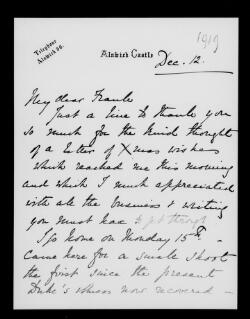 1919
Telephone
Alnwick 56.
Alnwick Castle
Dec. 12.
My dear Frank
Just a line to thank you
so much for the kind thought
of a letter of Xmas wishes
which reached me this morning
and which I much appreciated
with all the business & writing
you must have to get through
I go home on Monday 15th.
Came here for a small shoot
the first since the present
Duke's illness now recovered —